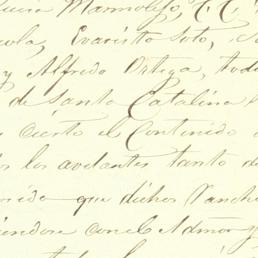 Marmolejo, 
Evaristo Soto,
y Alfredo Ortega, todo
de Santa Catalina
Cierto el Contenido
los avelantes tanto de
que dichos Ranche
con el Admor y